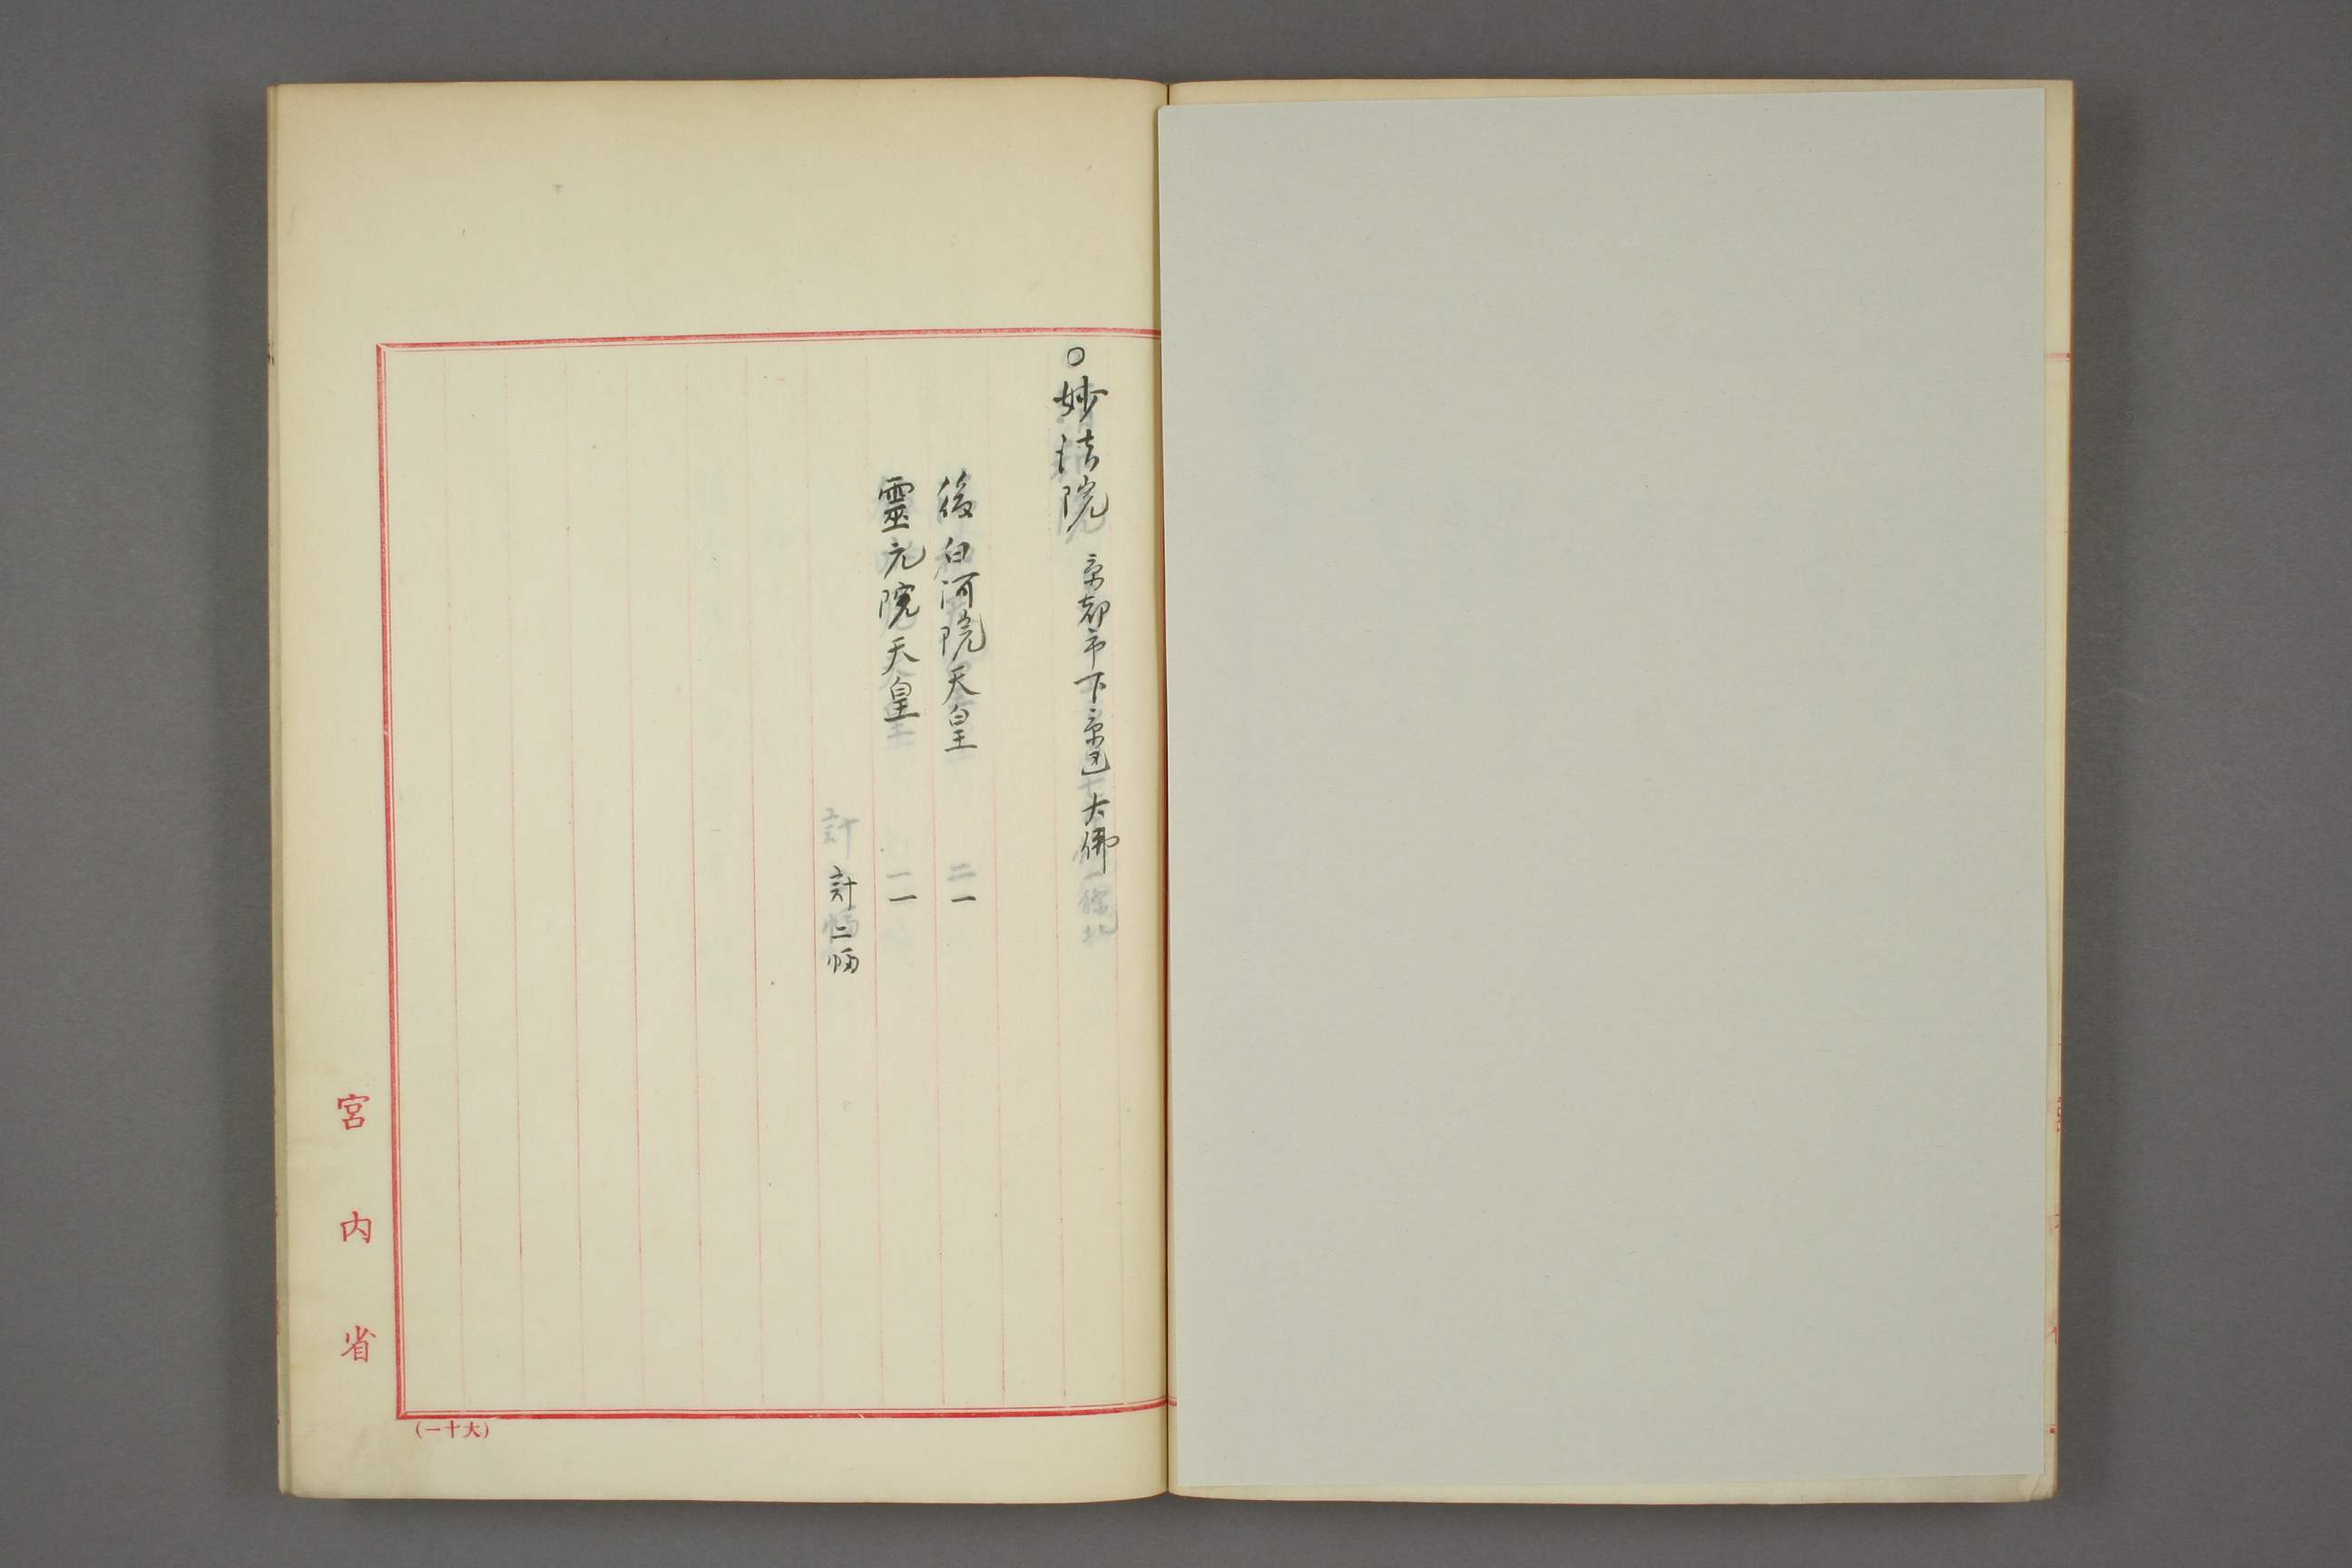 ○妙法院 京都市下京区大佛
後白河院天皇 一
靈元院天皇 一
計二幅
宮内省
(大十一)